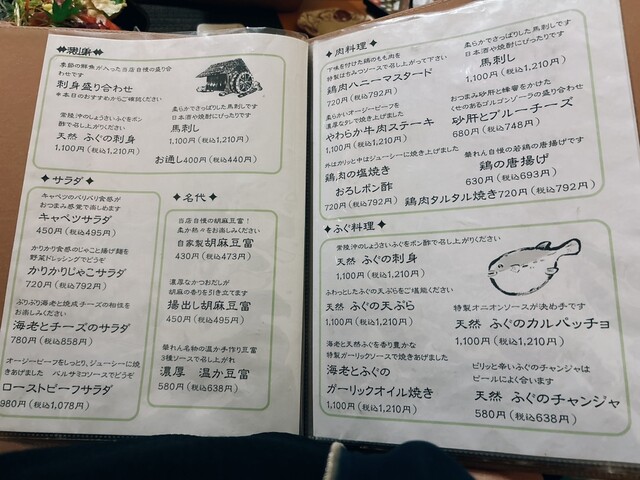 刺身
季節の鮮魚が入った当店自慢の盛り合
わせです
刺身盛り合わせ
*本日のおすすめからご確認ください
常陸沖のしょうさいふぐをポン
酢で召し上がりください
天然 ふぐの刺身
1,100円(税込1,210円)
柔らかでさっぱりした馬刺しです
日本酒や焼酎にぴったりです
馬刺し
1,100円(税込1,210円)
お通し400円(税込440円)
サラダ
キャベツのパリパリ食感が
おつまみ感覚で楽しめます
キャベツサラダ
450円(税込495円)
かりかり食感のじゃこと揚げ麺を
野菜ドレッシングでどうぞ
かりかりじゃこサラダ
720円(税込792円)
ぷりぷり海老と焼成チーズの相性を
お楽しみください
海老とチーズのサラダ
780円(税込858円)
オージービーフをしっとり、ジューシーに焼
きあげました バルサミコソースでどうぞ
ローストビーフサラダ
980円(税込1,078円)
名代
当店自慢の胡麻豆富!
柔か熱々をお楽しみください
自家製胡麻豆富
430円(税込473円)
濃厚なかつおだしが
胡麻の香りを引き立てます
揚出し胡麻豆富
450円(税込495円)
華れん名物の温か手作り豆富
3種ソースで召し上がれ
濃厚 温か豆富
580円(税込638円)
肉料理
下味を付けた鶏のもも肉を
特製はちみつソースで召し上がって下さい
鶏肉ハニーマスタード
720円(税込792円)
柔らかいオージービーフを
濃厚なタレで焼き上げました
やわらか牛肉ステーキ
1,100円(税込1,210円)
外はカリッと中はジューシーに焼き上げました
鶏肉の塩焼き
おろしポン酢
720円(税込792円)
柔らかでさっぱりした馬刺しです
日本酒や焼酎にぴったりです
馬刺し
1,100円(税込1,210円)
おつまみ砂肝と蜂蜜をかけた
くせのあるゴルゴンゾーラの盛り合わせ
砂肝とブルーチーズ
680円(税込748円)
華れん自慢の若鶏の唐揚げです
鶏の唐揚げ
630円(税込693円)
鶏肉タルタル焼き720円(税込792円)
ふぐ料理
常陸沖のしょうさいふぐをポン酢で召し上がりください
天然 ふぐの刺身
1,100円(税込1,210円)
ふわっとしたふぐの天ぷらをご堪能ください
天然 ふぐの天ぷら
1,100円(税込1,210円)
海老と天然ふぐを香り豊かな
特製ガーリックソースで焼きあげました
海老とふぐの
ガーリックオイル焼き
1,100円(税込1,210円)
特製オニオンソースが決め手です
天然 ふぐのカルパッチョ
1,100円(税込1,210円)
ピリッと辛いふぐのチャンジャは
ビールによく合います
天然 ふぐのチャンジャ
580円(税込638円)